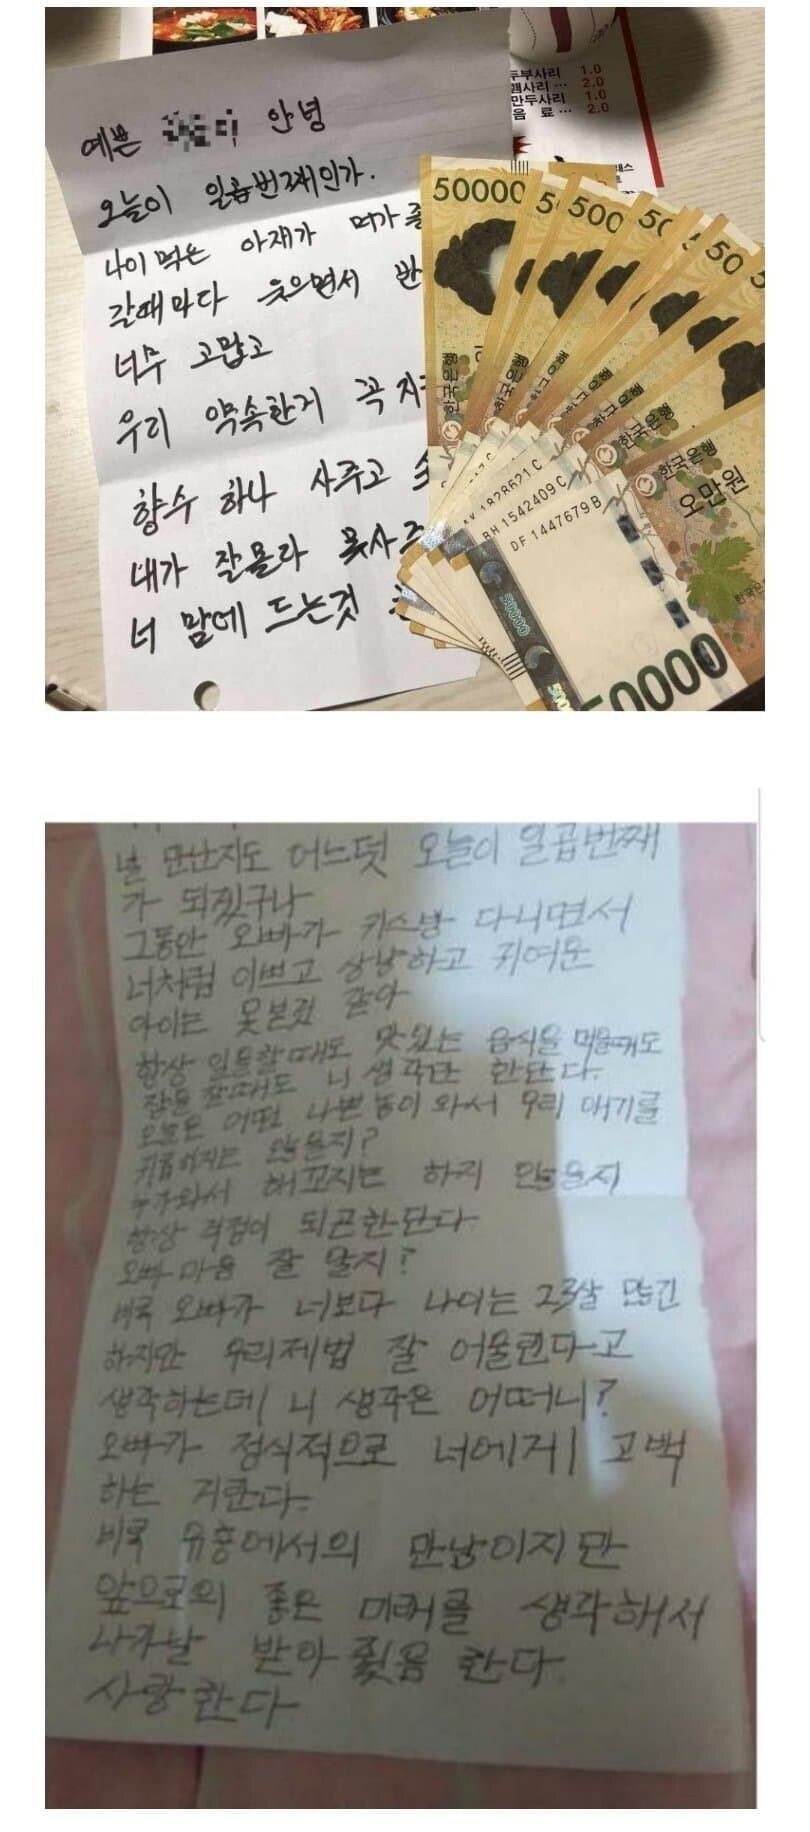 두부사리 1.0
햄사리 ··· 2.0
만두사리 1.0
음 료 ··· 2.0
예쁜 안녕
오늘이 일곱번째인가.
나이먹은 아재가 머가 좋
갈때마다 웃으면서 반
너무 고맙고
우리 약속한거 꼭 지
향수 하나 사주고
내가 잘몰라 못사주
너 맘에 드는것
50000
한국은행
한국은행
오만원
1828621 C
BH 1542409 C
DF 1447679 B
50000
널 만난지도 어느덧 오늘이 일곱번째
가 되겠구나
그동안 오빠가 키스방 다니면서
너처럼 이쁘고 상냥하고 귀여운
아이는 못본것 같아
항상 일을할때도 맛있는 음식을 먹을때도
잠을 잘때도 니 생각만 한단다.
오늘은 어떤 나쁜놈이 와서 우리 애기를
않을지?
와서 해꼬지는 하지 않을지
항상 걱정이 되곤한단다
오빠 마음 잘 알지?
비록 오빠가 너보다 나이는 23살 많긴
하지만 우리제법 잘 어울린다고
생각하는데 니 생각은 어떠니?
오빠가 정식적으로 너에게 고백
하는 거란다.
비록 유흥에서의 만남이지만
앞으로의 좋은 미래를 생각해서
나가날 받아줬음 한다.
사랑한다